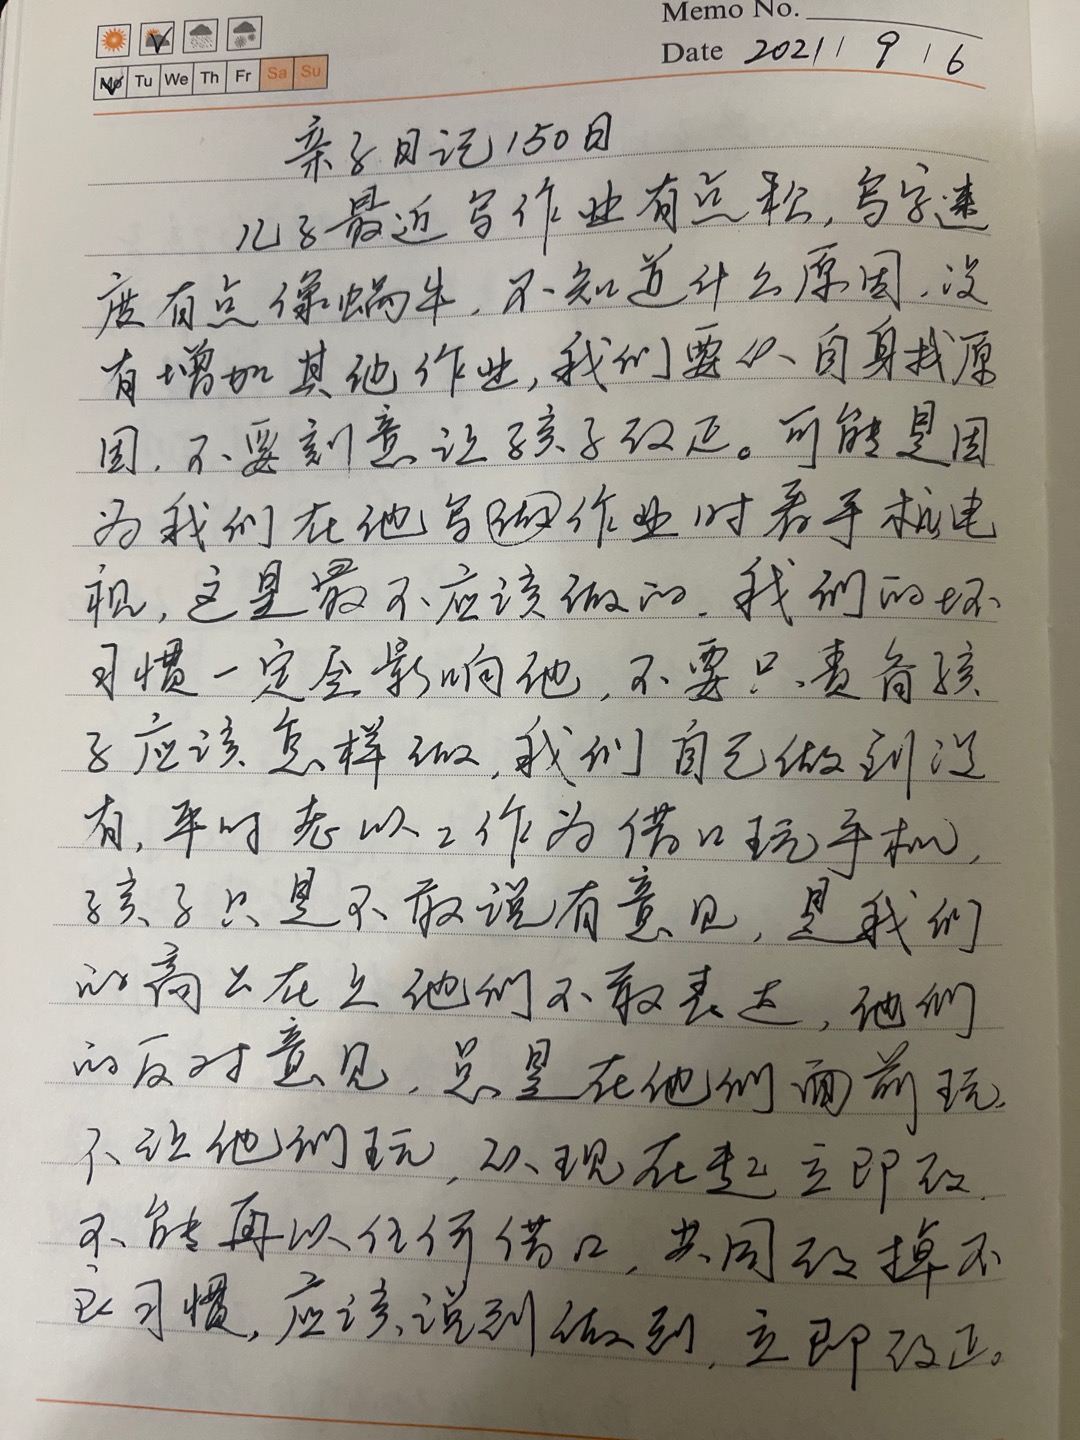 Memo No.
Mo Tu We Th Fr Sa Su
Date 2021 / 9 / 6
亲子日记150日
儿子最近写作业有点松,写字速
度有点像蜗牛,不知道什么原因,没
有增加其他作业,我们要从自身找原
因,不要刻意让孩子改正。可能是因
为我们在他写作业时看手机电
视,这是最不应该做的,我们的坏
习惯一定会影响他,不要只责备孩
子应该怎样做,我们自己做到没
有,平时老以工作为借口玩手机,
孩子只是不敢说有意见,是我们
的高高在上他们不敢表达,他们
的反对意见,总是在他们面前玩,
不让他们玩,从现在起立即改,
不能再以任何借口,共同改掉不
良习惯,应该说到做到,立即改正。